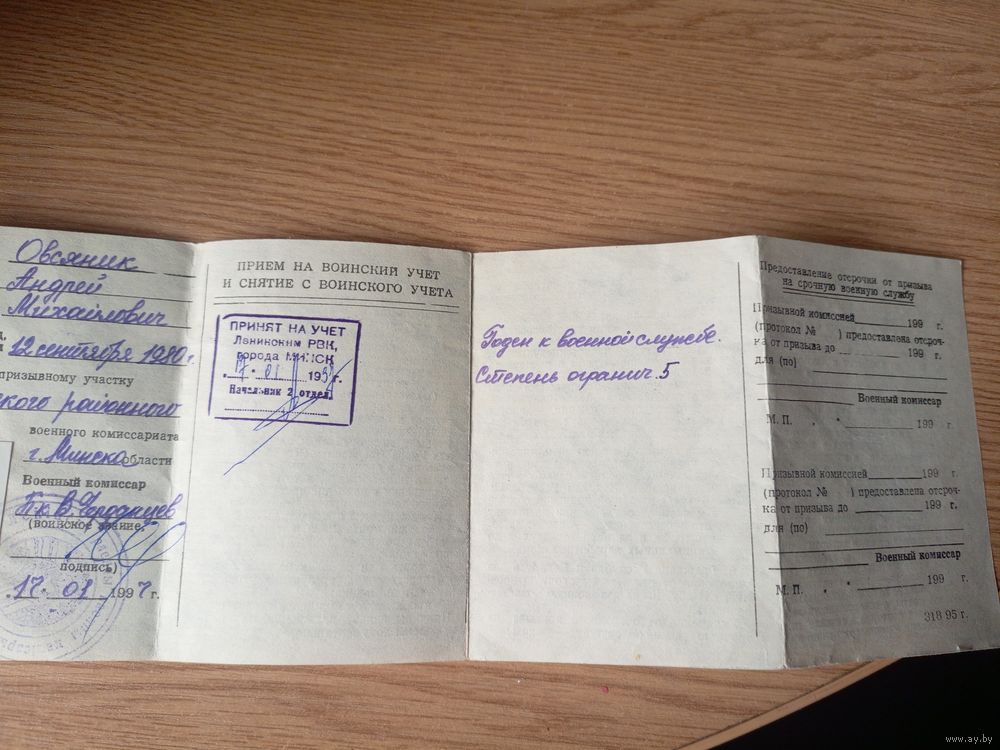 Овсяник
Андрей
Михайлович
12 сентября 1980 г.
призывному участку
ского районного
военного комиссариата
г. Минска области
Военный комиссар
П-к В.
(воинское звание,
подпись)
17. 01 1997 г.
ПРИЕМ НА ВОИНСКИЙ УЧЕТ
И СНЯТИЕ С ВОИНСКОГО УЧЕТА
ПРИНЯТ НА УЧЕТ
Ленинским РВК,
города МИНСК
17. 01 199 г.
Начальник 2 отдел.
Годен к военной службе.
Степень огранич. 5
Предоставление отсрочки от призыва
на срочную военную службу
Призывной комиссией 199 г.
(протокол № ) предоставлена отсроч-
ка от призыва до 199 г.
для (по)
Военный комиссар
М. П. 199 г.
Призывной комиссией 199 г.
(протокол № ) предоставлена отсроч-
ка от призыва до 199 г.
для (по)
Военный комиссар
М. П. 199 г.
318 95 г.
www.ay.by